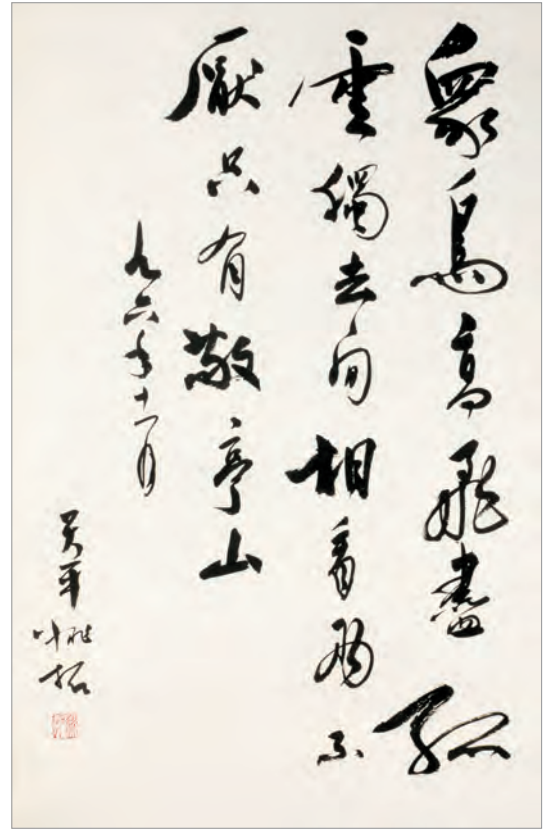 眾鳥高飛盡孤
雲獨去閑相看兩不
厭只有敬亭山
九六年十一月
平
叶